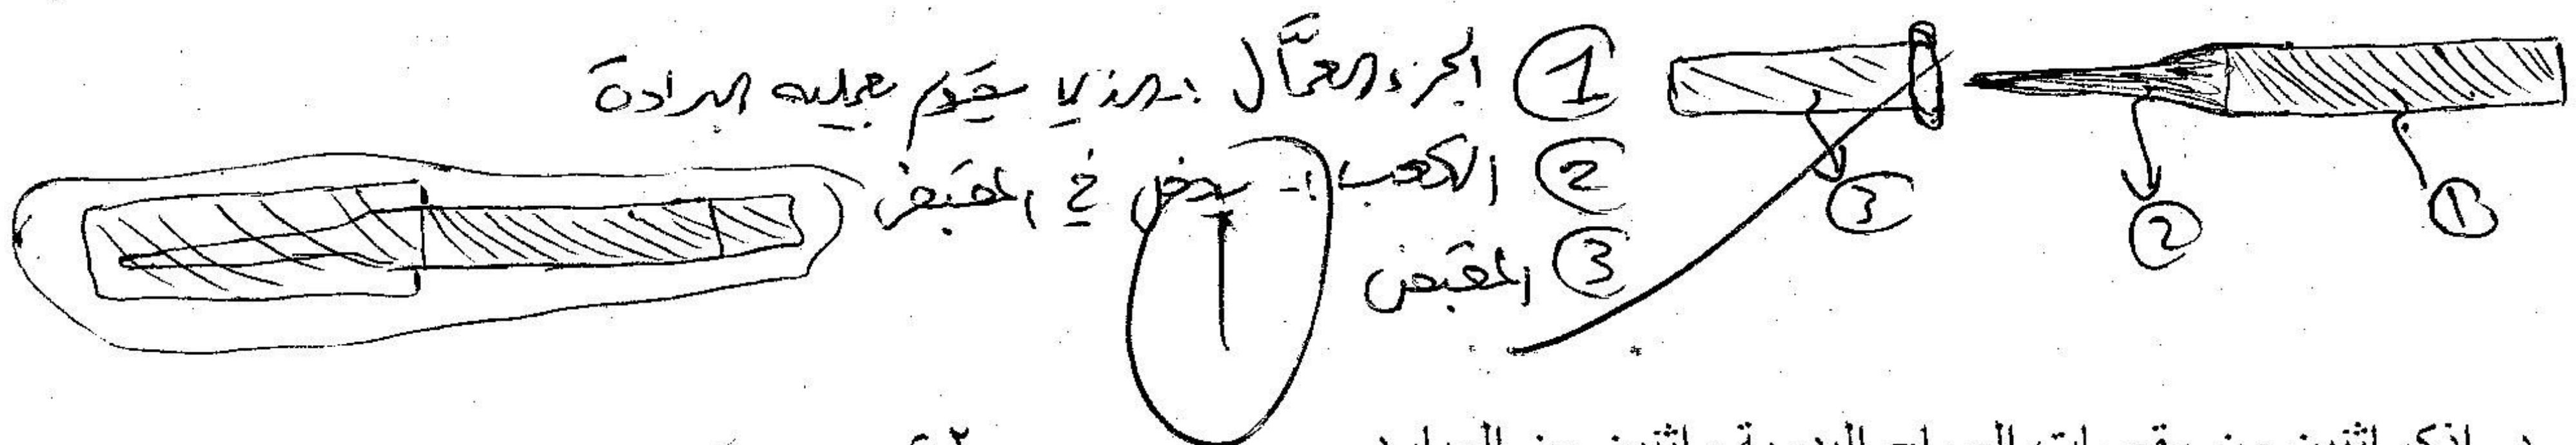 ① الجزء العمَّال :- الذي يقوم بعملية البرادة
② الكعب :- يدخل في المقبض
③ المقبض
③
②
①